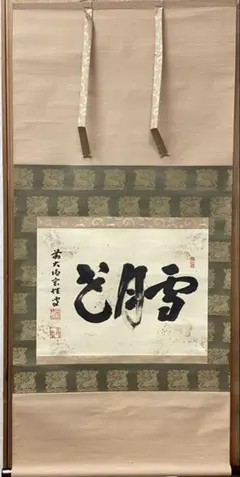 雪月花
前大徳宗惺書